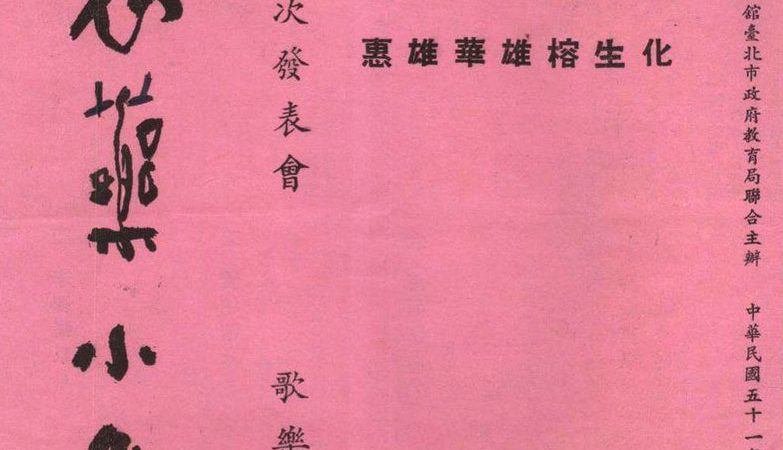 館臺北市政府教育局聯合主辦　中華民國五十一
惠雄華雄榕生化
次發表會　歌樂
小